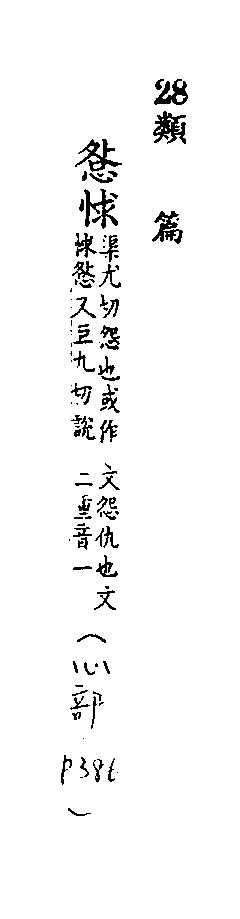 28類 篇
慦㤹
渠尤切怨也或作
㤹慦又巨九切說
文怨仇也文
二重音一
(心部
p386
)